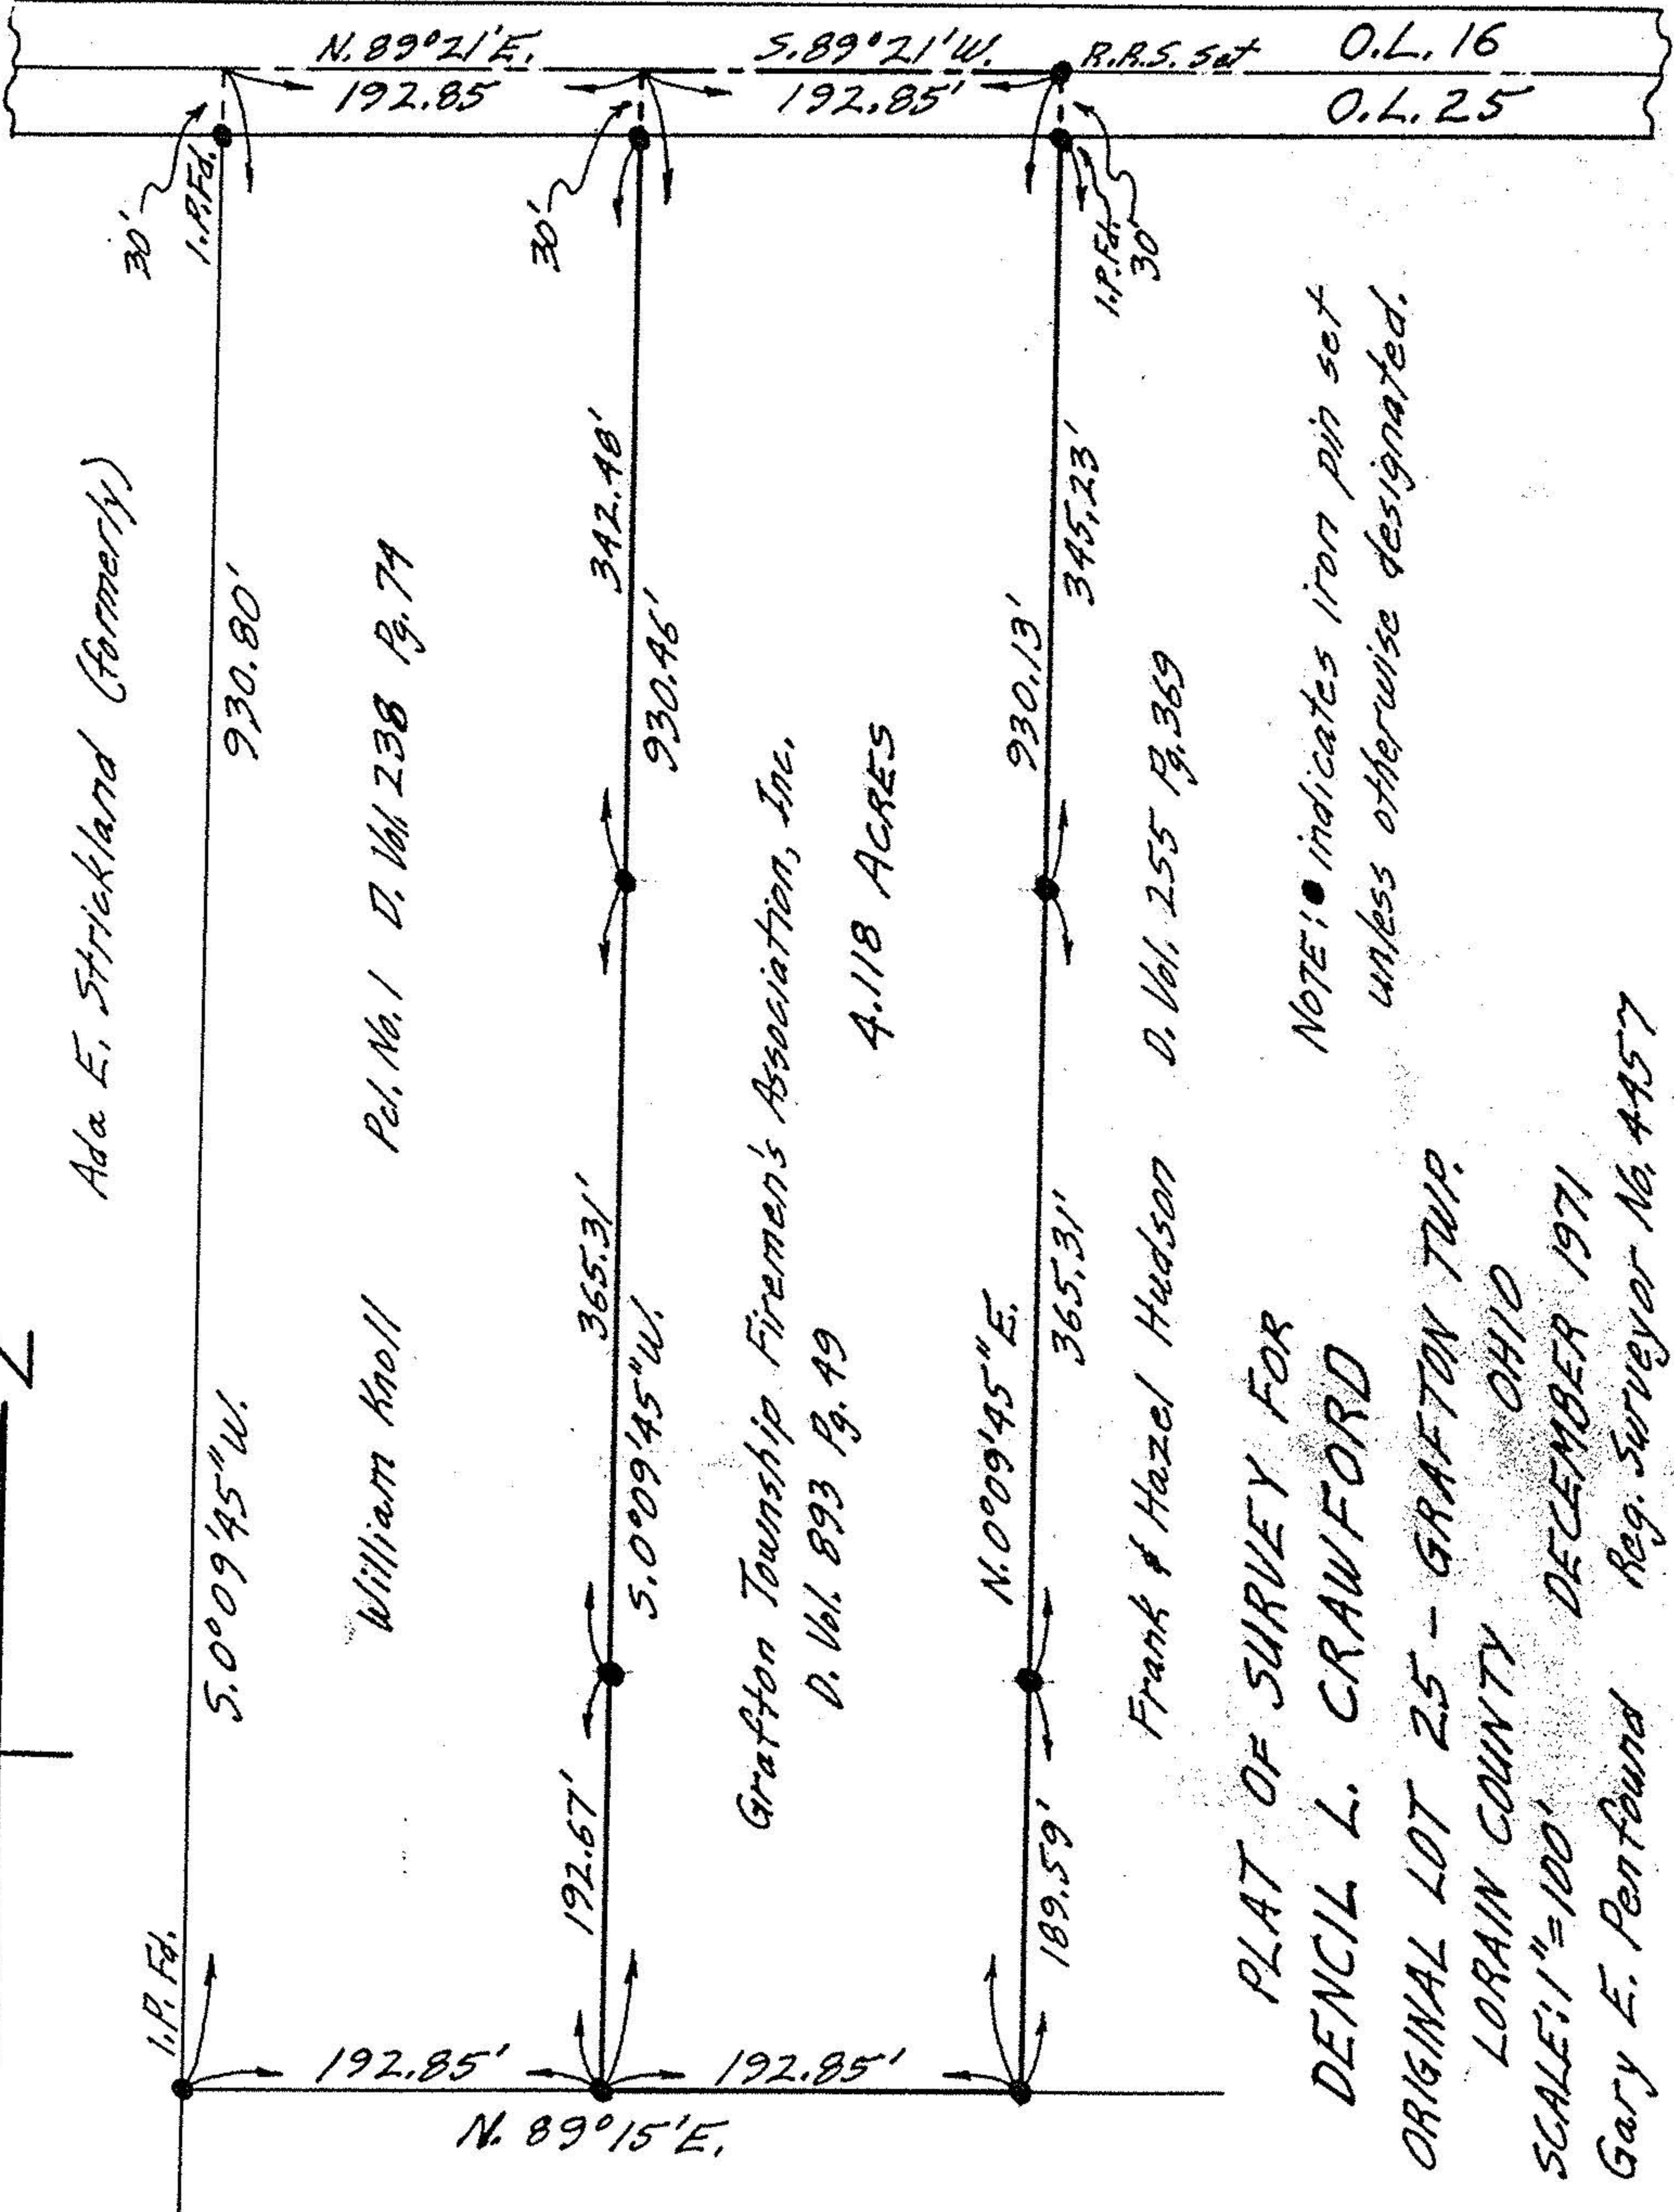 N. 89°21'E.
192.85
S. 89°21'W.
192.85'
R.R.S. Set
O.L. 16
O.L. 25
30'
I.P.Fd.
30'
I.P.Fd.
30'
Ada E. Strickland (formerly)
S. 0°09'45"W.
930.80'
I.P. Fd.
William Knoll Pcl. No. 1 D. Vol. 238 Pg. 74
192.67'
365.31'
342.48'
S. 0°09'45"W.
930.46'
Grafton Township Firemen's Association, Inc.
D. Vol. 893 Pg. 49
4.118 ACRES
N. 0°09'45"E.
930.13'
189.59'
365.31'
345.23'
Frank & Hazel Hudson D. Vol. 255 Pg. 369
192.85'
192.85'
N. 89°15'E.
NOTE: ● indicates iron pin set
unless otherwise designated.
PLAT OF SURVEY FOR
DENCIL L. CRAWFORD
ORIGINAL LOT 25 - GRAFTON TWP.
LORAIN COUNTY OHIO
SCALE: 1"=100' DECEMBER 1971
Gary E. Penfound Reg. Surveyor No. 4457